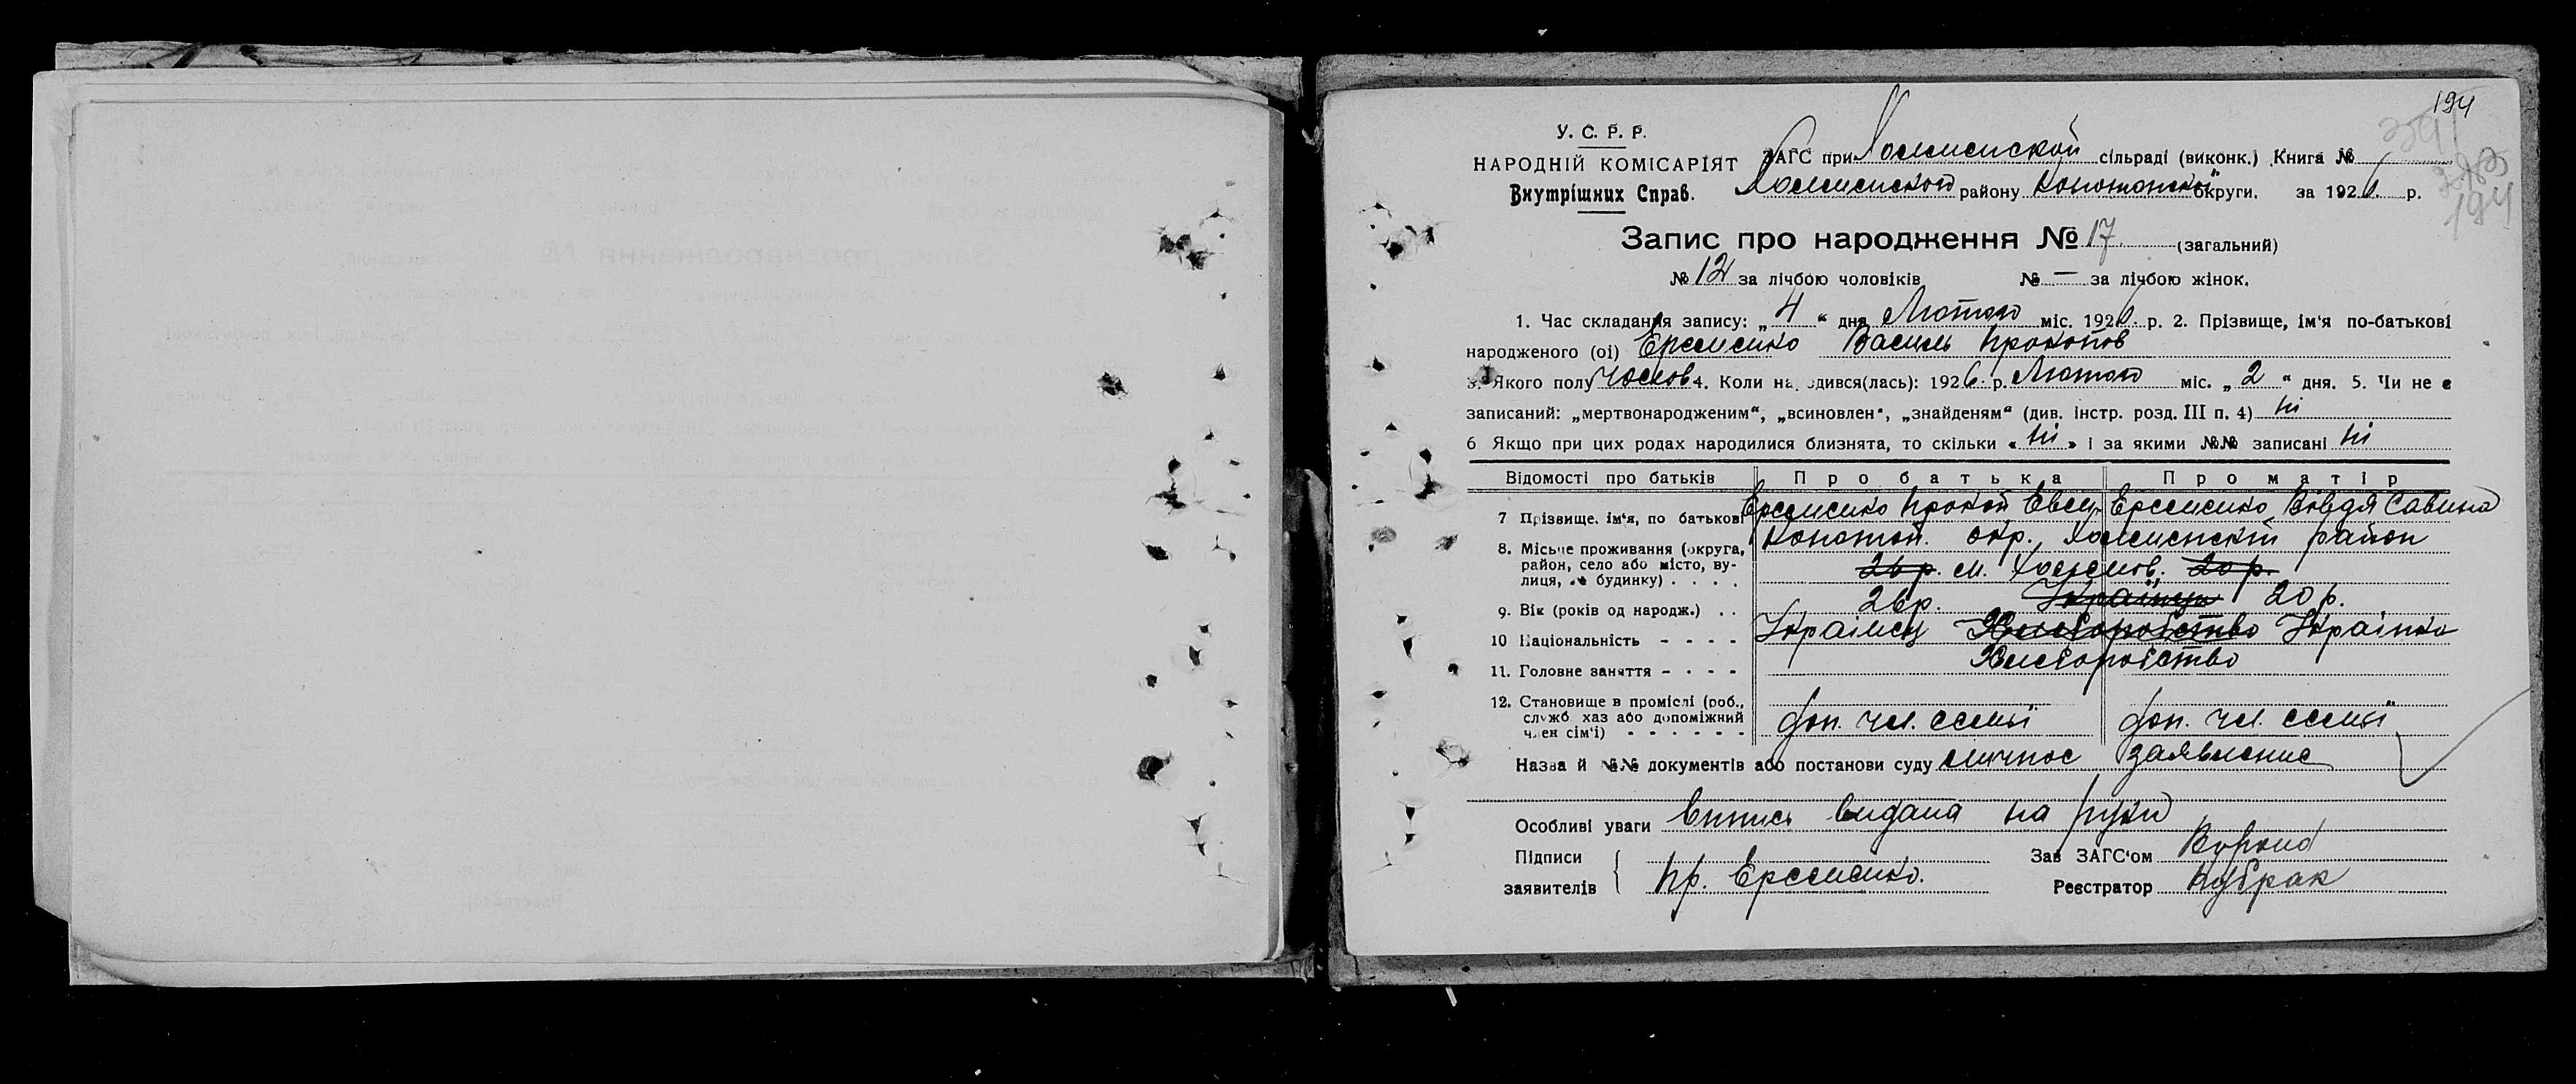 194
У. С. Р. Р.
НАРОДНІЙ КОМІСАРІЯТ
Внутрішних Справ.
ЗАГС при Холменской сільраді (виконк.) Книга №
Холменского району Конотопской округи. за 1926 р.
194
Запис про народження № 17 (загальний)
№ 12 за лічбою чоловіків № — за лічбою жінок.
1. Час складання запису: „ 4 “ дня Лютого міс. 1926 р. 2. Прізвище, ім'я по-батькові
народженого (оі) Еременко Василь Прокопов
3. Якого полу чолов 4. Коли народився(лась): 1926 р. Лютого міс. „ 2 “ дня. 5. Чи не є
записаний: „мертвонародженим“, „всиновлен“, „знайденям“ (див. інстр. розд. III п. 4) Ні
6 Якщо при цих родах народилися близнята, то скільки « Ні » і за якими №№ записані Ні
Відомості про батьків Про батька Про матір
7 Прізвище, ім'я, по батькові Еременко Прокоп Евсей Еременко Вовдя Савина
8. Місьце проживання (округа, район, село або місто, вулиця, № будинку) Конотоп. окр., Холменскій район
26 р. м. Холмов. 20 р.
9. Вік (років од народж.) 26 р. Українец 20 р.
10 Національність Українец Хлеборобство Українка
11. Головне заняття Хлеборобство
12. Становище в промислі (роб., служб. хаз або допоміжний член сім'ї) доп. чл. семьї доп. чл. семьї
Назва й №№ документів або постанови суду личное заявление
Особливі уваги Випись видана на руки
Підписи
заявителів Пр. Еременко.
Зав ЗАГС'ом
Реєстратор Кубрак